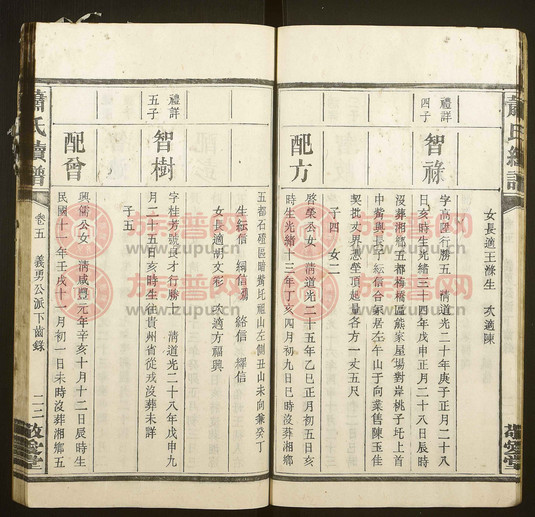 女長適王滌生 次適陳
禮詳
四子
智祿
字高躍行勝五 清道光二十年庚子正月二十八
日亥時生光緒三十四年戊申正月二十八日辰時
沒葬湘鄉五都梅橋區熊家屋場對岸桃子圫上首
中嘴與長子紜信合冢居左午山子向業售陳玉佳
契批丈界憑塋頂起量各方一丈五尺
子四 女二
配方
啓榮公女 清道光二十五年乙巳正月初五日亥
時生光緒十三年丁亥四月初九日巳時沒葬湘鄉
五都石壇區瞄觜圫祖山左側丑山未向兼癸丁
生紜信 綢信 綌信 繹信
女長適胡文彩 次適方福興
禮詳
五子
智樹
字桂芳號長才行勝上 清道光二十八年戊申九
月二十五日亥時生往貴州省從戎沒葬未詳
子五
配曾
興儒公女 清咸豐元年辛亥十月十二日辰時生
民國十一年壬戌十一月初一日未時沒葬湘鄉五
蕭氏續譜
卷五 義勇公派下齒錄
二二
敬愛堂
族普网
www.zupu.cn
族普网
www.zupu.cn